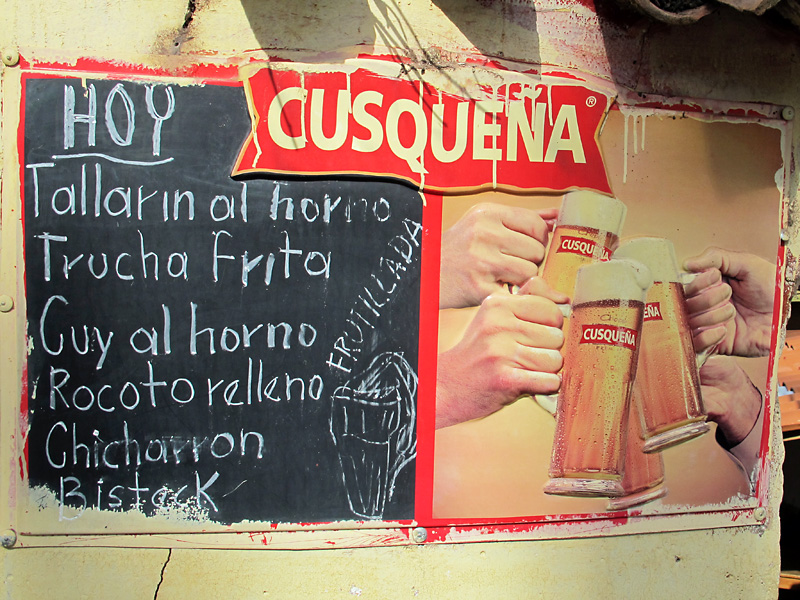 HOY
CUSQUEÑA®
Tallarin al horno
Trucha Frita
Cuy al horno
Rocoto relleno
Chicharron
Bisteck
FRUTILLADA
CUSQUEÑA
CUSQUEÑA
EÑA